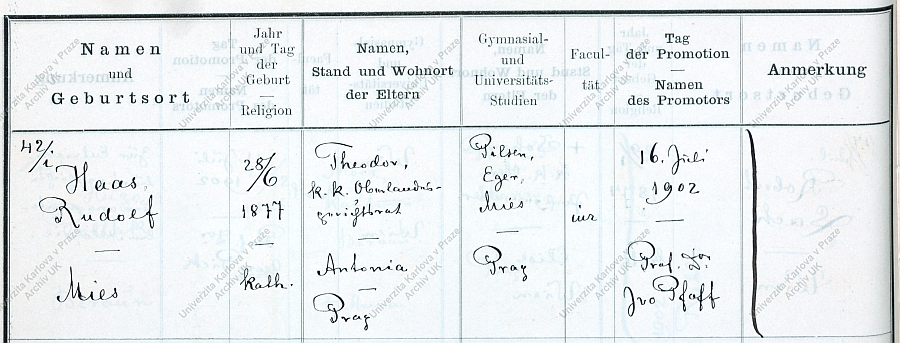 Namen
und
Geburtsort
Jahr
und Tag
der
Geburt
Religion
Namen,
Stand und Wohnort
der Eltern
Gymnasial-
und
Universitäts-
Studien
Facul-
tät
Tag
der Promotion
Namen
des Promotors
Anmerkung
42/I
Haas,
Rudolf
Mies
28/6
1877
kath.
Theodor,
k. k. Oberlandes-
gerichtsrat
Antonia
Prag
Pilsen,
Eger,
Mies
Prag
iur
16. Juli
1902
Prof. Dr.
Ivo Pfaff
Univerzita Karlova v Praze
Archiv UK